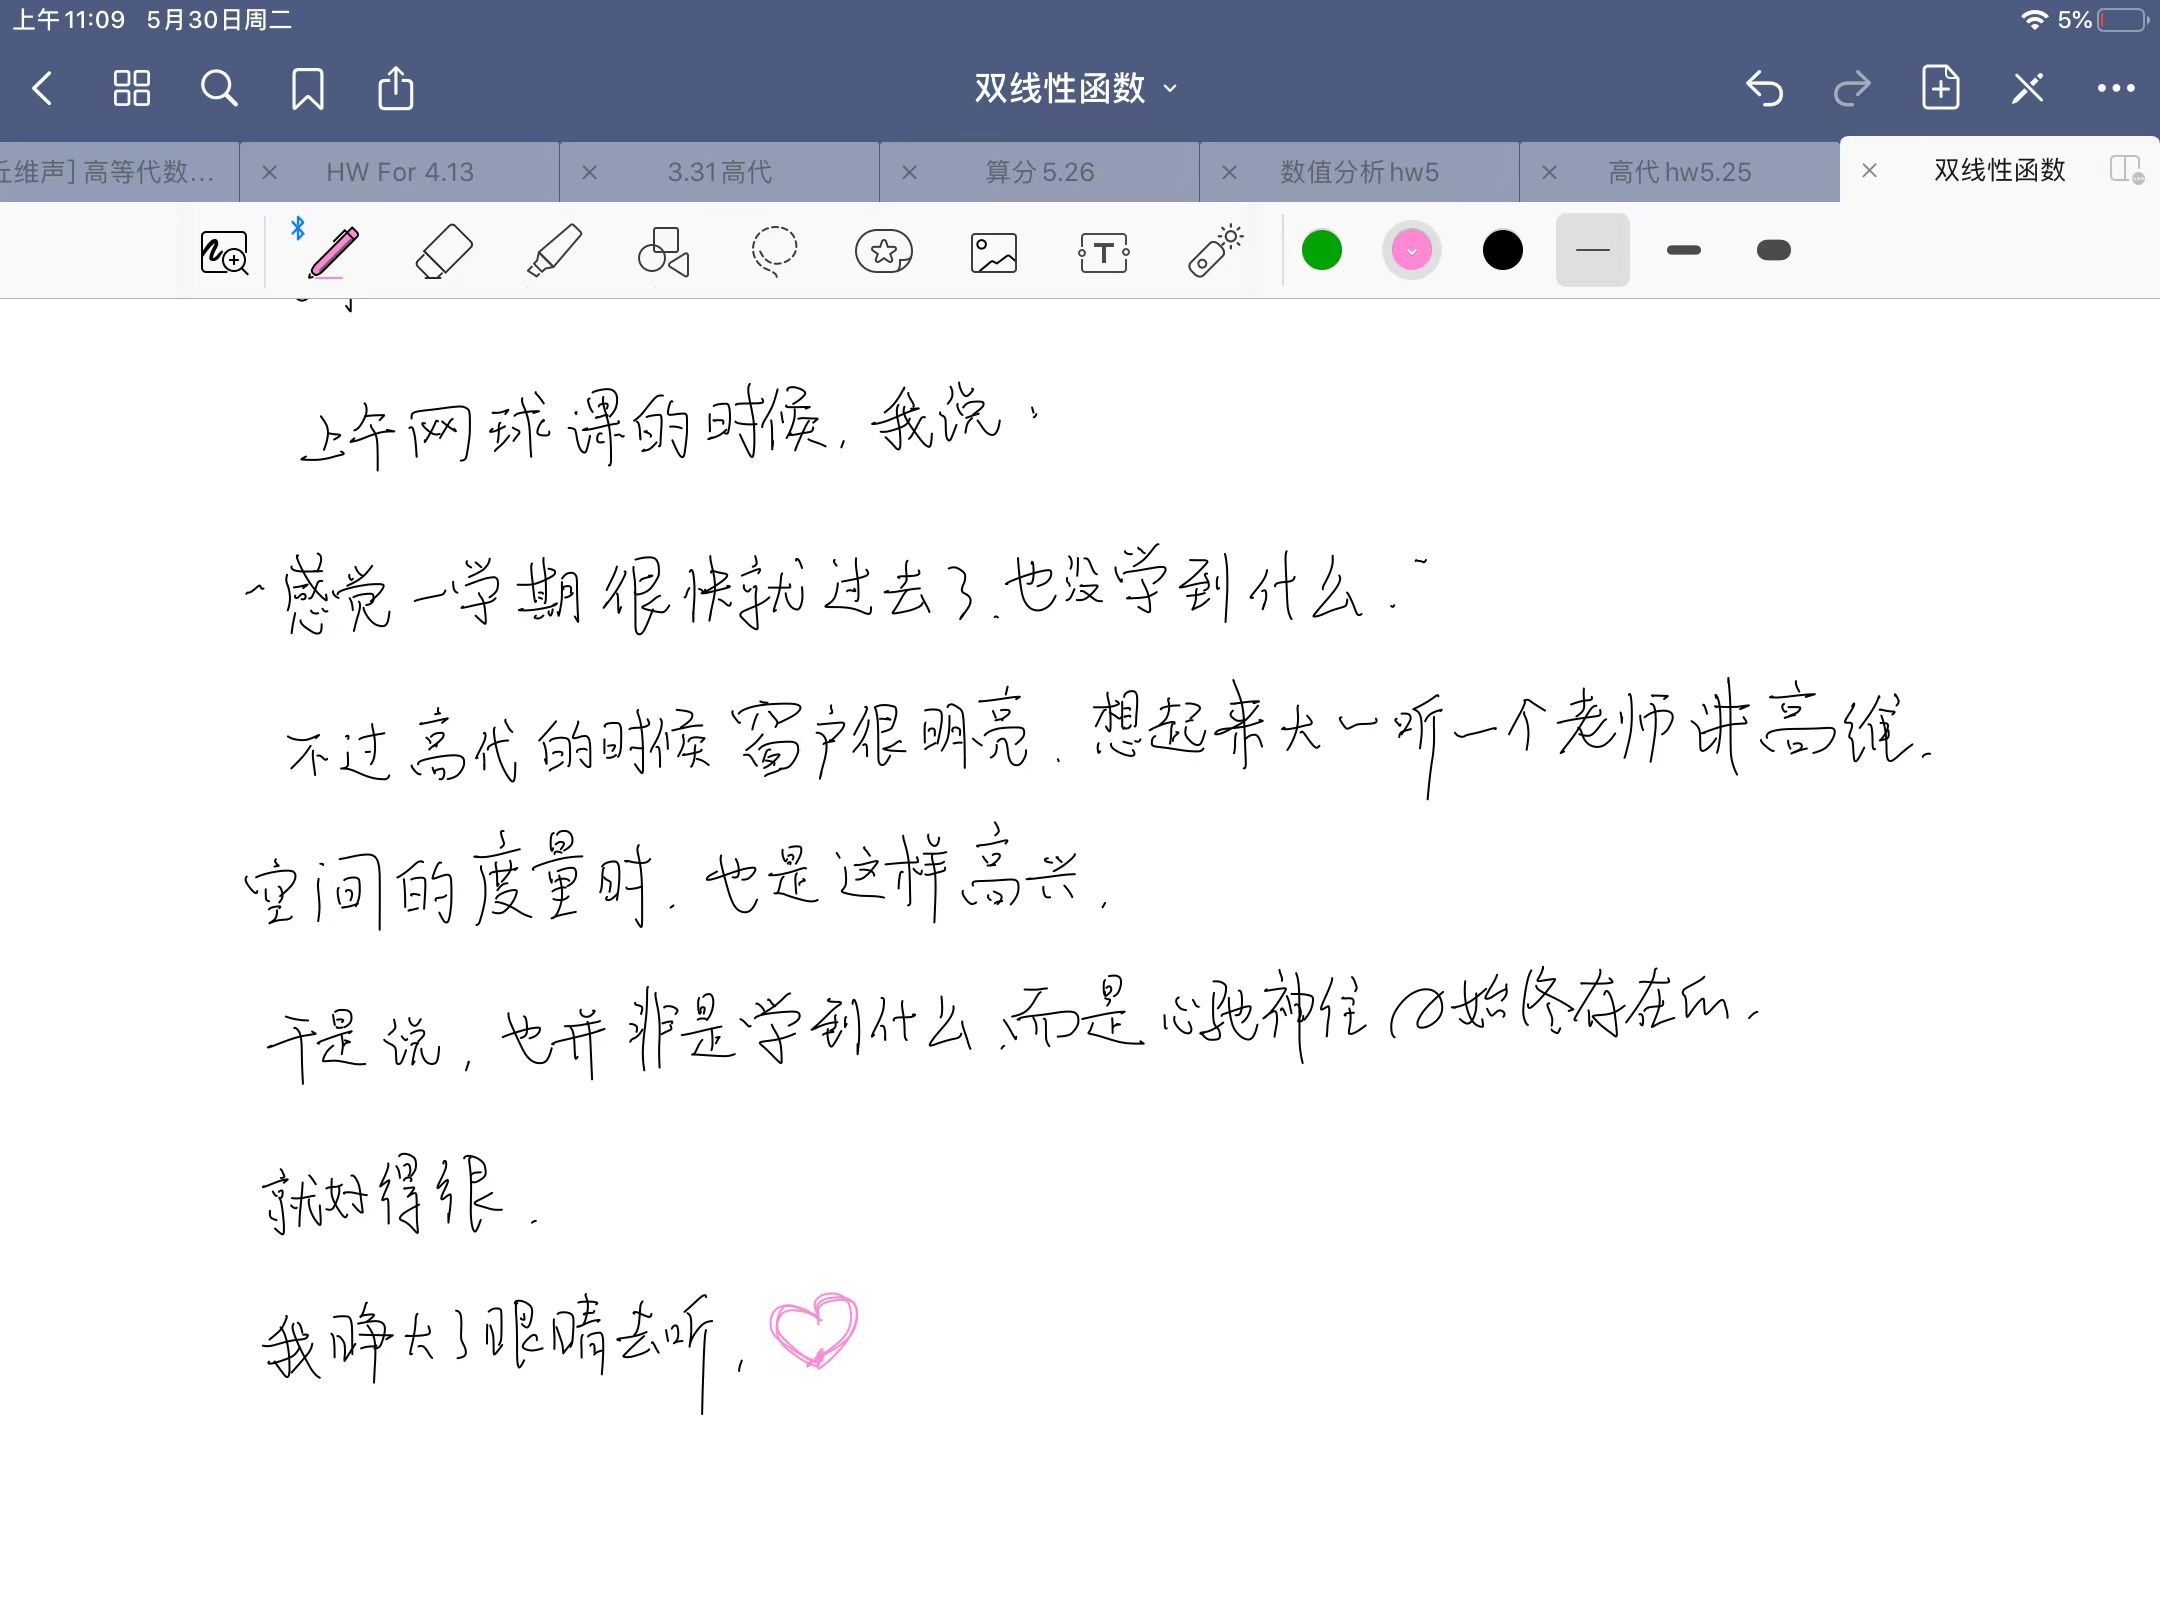 上午11:09 5月30日周二 5%
双线性函数
丘维声] 高等代数... HW For 4.13 3.31高代 算分5.26 数值分析hw5 高代hw5.25 双线性函数
上午网球课的时候，我说：
“感觉一学期很快就过去了，也没学到什么.”
不过高代的时候窗户很明亮.想起来大一听一个老师讲高维.
空间的度量时.也是这样高兴.
于是说，也并非是学到什么，而是心驰神往 始终存在的.
就好得很.
我睁大了眼睛去听，